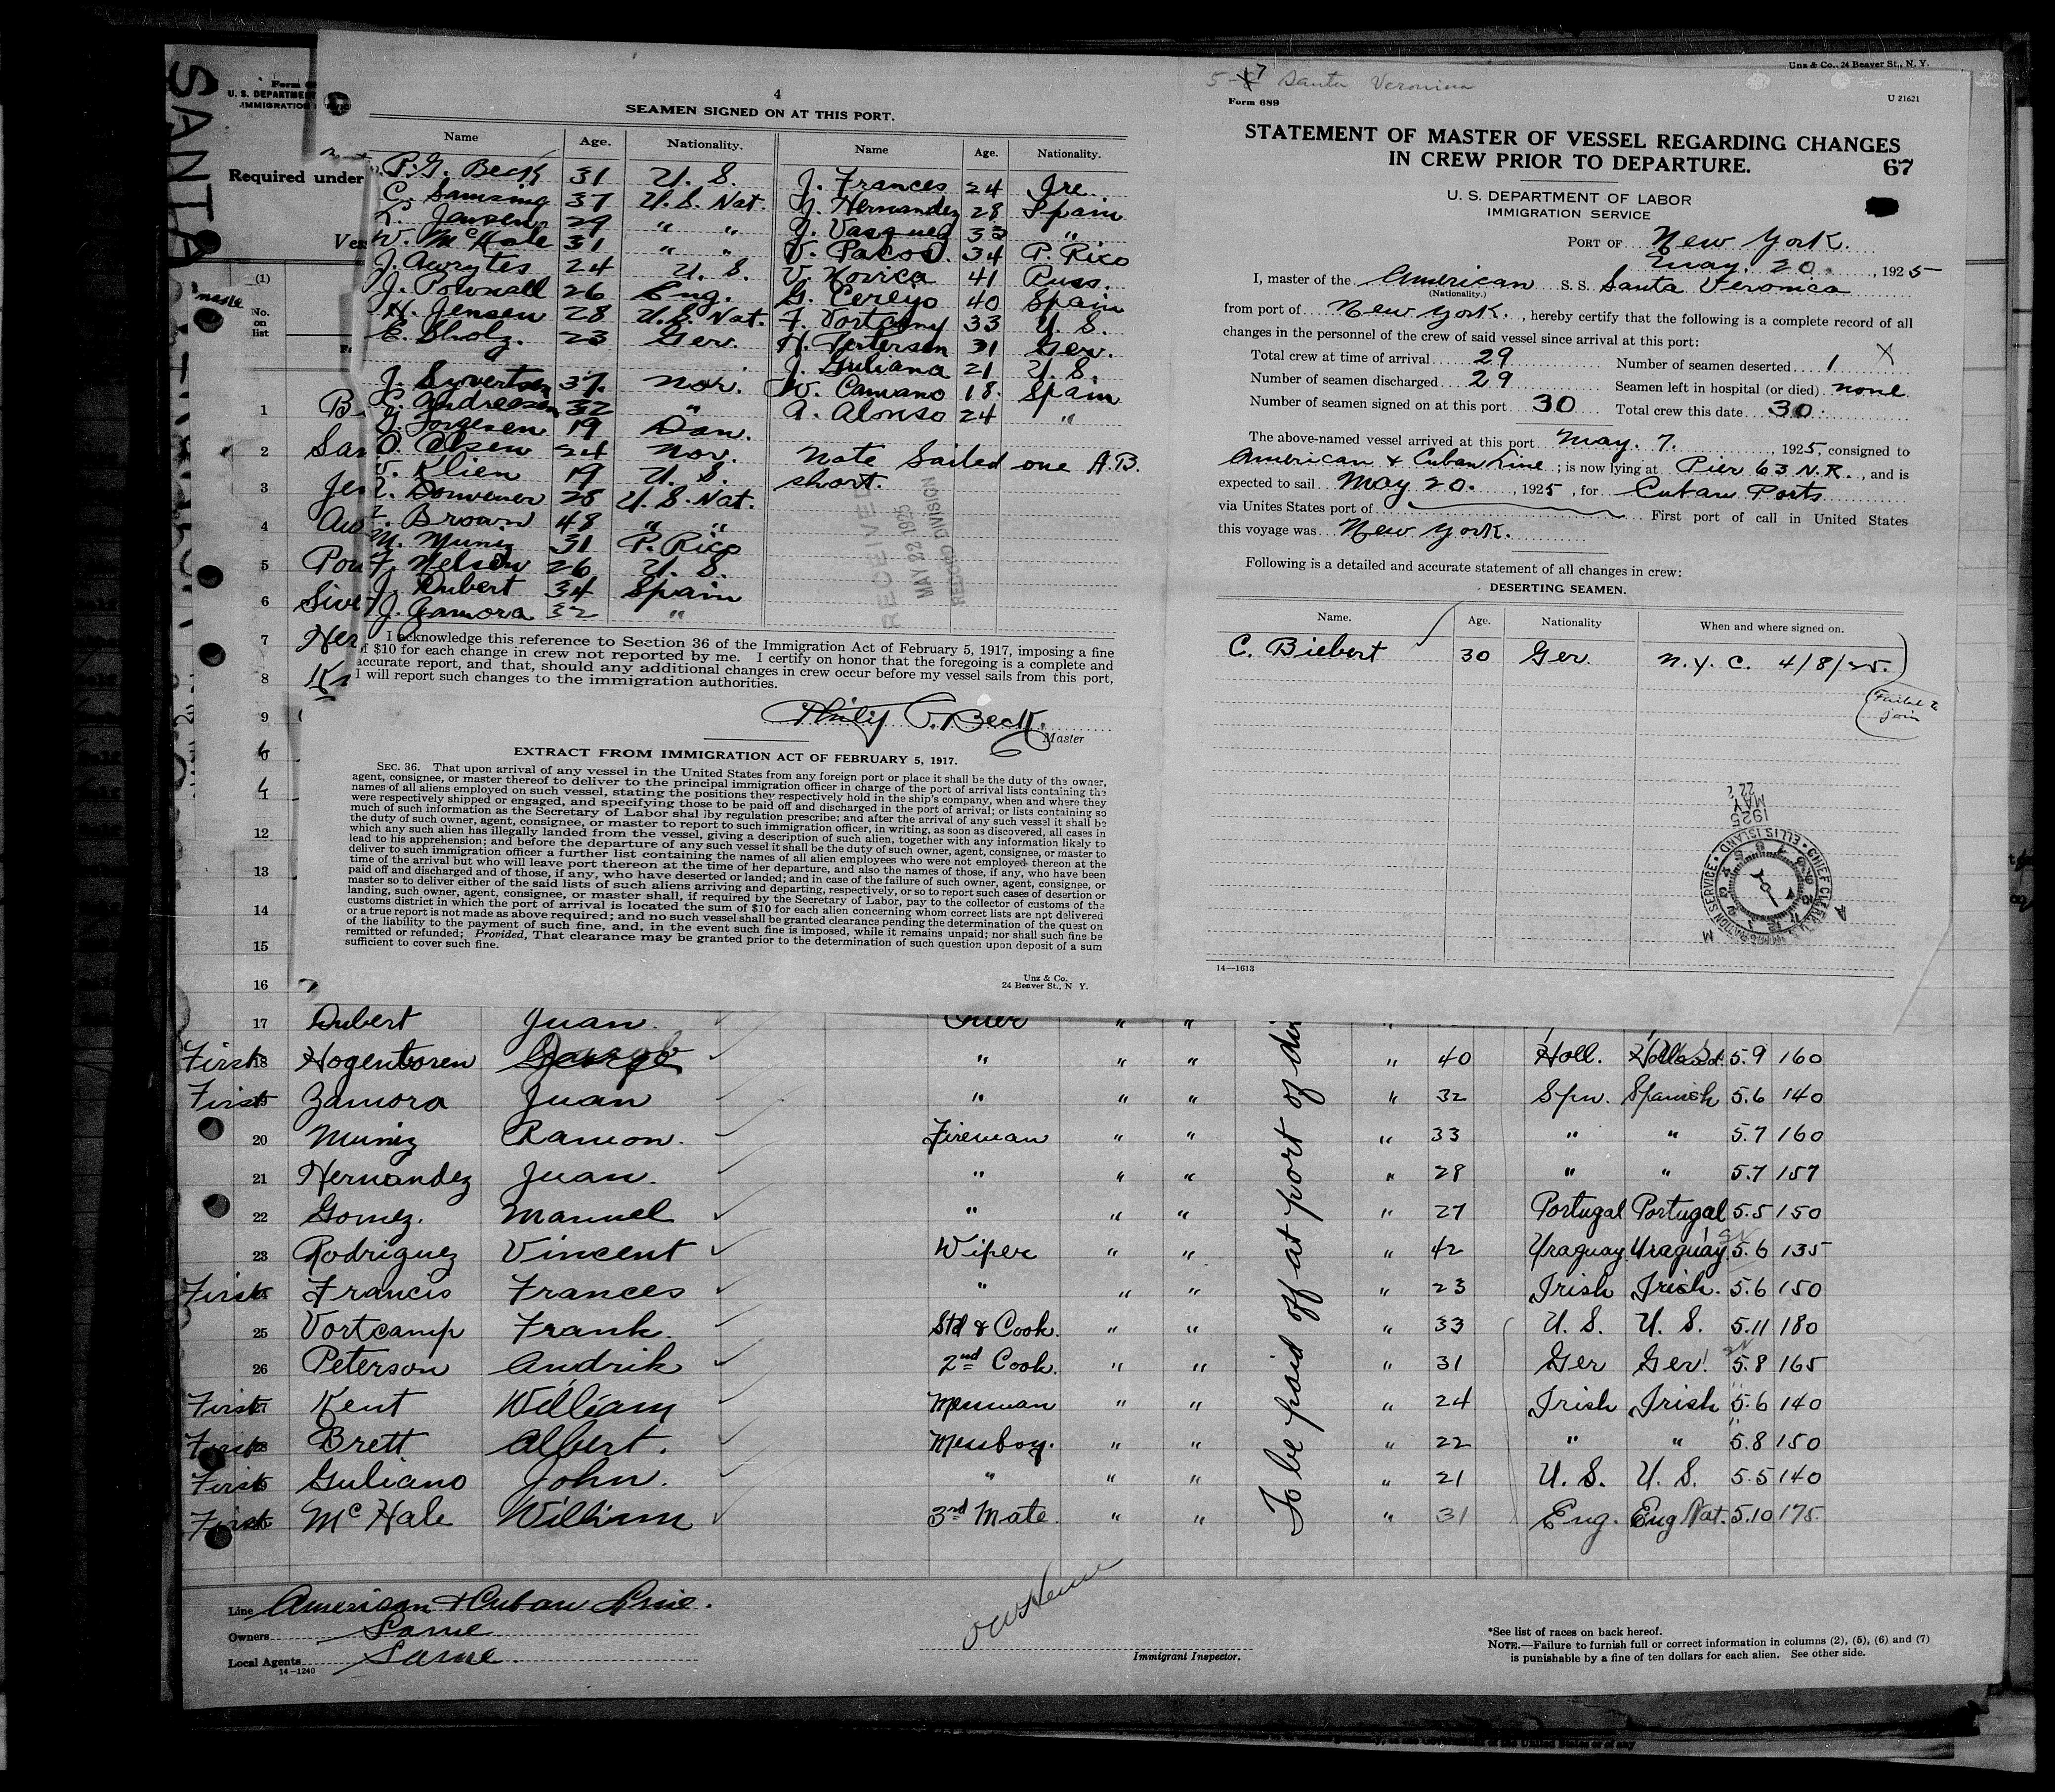 SANTA
Form
U. S. DEPARTMENT
IMMIGRATION
Required under
Ves
(1)
No.
on
list
4
SEAMEN SIGNED ON AT THIS PORT.
Name Age. Nationality. Name Age. Nationality.
P. G. Beck 31 U. S. J. Frances 24 Ire.
C. Samsing 37 U.S. Nat. J. Hernandez 28 Spain
L. Jansen 29 " " J. Vasqueg 33 "
W. McHale 31 " " V. Pacos. 34 P. Rico
J. Awrytes 24 U. S. V. Novica 41 Russ.
J. Pownall 26 Eng. G. Cereyo 40 Spain
H. Jensen 28 U.S. Nat. F. Vortcamp 33 U. S.
E. Sholz. 23 Ger. H. Petersen 31 Ger.
J. Guliana 21 U. S.
J. Sivertsen 37. Nor. W. Camano 18. Spain
C. Andreasen 32 " A. Alonso 24 "
J. Jorgesen 19 Dan.
O. Olsen 24 Nor. Note Sailed one A.B.
Klien 19 U. S. short.
Donvener 28 U.S. Nat.
Brown 48 " "
M. Muniz 31 P. Rico
F. Nelson 26 U. S.
J. Dubert 34 Spain
J. Zamora 32 "
RECEIVED
MAY 22 1925
RECORD DIVISION
I acknowledge this reference to Section 36 of the Immigration Act of February 5, 1917, imposing a fine
of $10 for each change in crew not reported by me. I certify on honor that the foregoing is a complete and
accurate report, and that, should any additional changes in crew occur before my vessel sails from this port,
I will report such changes to the immigration authorities.
Philip G. Beck.
Master
EXTRACT FROM IMMIGRATION ACT OF FEBRUARY 5, 1917.
SEC. 36. That upon arrival of any vessel in the United States from any foreign port or place it shall be the duty of the owner,
agent, consignee, or master thereof to deliver to the principal immigration officer in charge of the port of arrival lists containing the
names of all aliens employed on such vessel, stating the positions they respectively hold in the ship's company, when and where they
were respectively shipped or engaged, and specifying those to be paid off and discharged in the port of arrival; or lists containing so
much of such information as the Secretary of Labor shal by regulation prescribe; and after the arrival of any such vessel it shall be
the duty of such owner, agent, consignee, or master to report to such immigration officer, in writing, as soon as discovered, all cases in
which any such alien has illegally landed from the vessel, giving a description of such alien, together with any information likely to
lead to his apprehension; and before the departure of any such vessel it shall be the duty of such owner, agent, consignee, or master to
deliver to such immigration officer a further list containing the names of all alien employees who were not employed thereon at the
time of the arrival but who will leave port thereon at the time of her departure, and also the names of those, if any, who have been
paid off and discharged and of those, if any, who have deserted or landed; and in case of the failure of such owner, agent, consignee, or
master so to deliver either of the said lists of such aliens arriving and departing, respectively, or so to report such cases of desertion or
landing, such owner, agent, consignee, or master shall, if required by the Secretary of Labor, pay to the collector of customs of the
customs district in which the port of arrival is located the sum of $10 for each alien concerning whom correct lists are not delivered
or a true report is not made as above required; and no such vessel shall be granted clearance pending the determination of the quest on
of the liability to the payment of such fine, and, in the event such fine is imposed, while it remains unpaid; nor shall such fine be
remitted or refunded; Provided, That clearance may be granted prior to the determination of such question upon deposit of a sum
sufficient to cover such fine.
Unz & Co.
24 Beaver St., N Y.
Unz & Co., 24 Beaver St., N. Y.
Santa Veronica
Form 689
U 21621
STATEMENT OF MASTER OF VESSEL REGARDING CHANGES
IN CREW PRIOR TO DEPARTURE. 67
U. S. DEPARTMENT OF LABOR
IMMIGRATION SERVICE
PORT OF New York.
May. 20. , 1925
I, master of the American S. S. Santa Veronica
(Nationality.)
from port of New York. , hereby certify that the following is a complete record of all
changes in the personnel of the crew of said vessel since arrival at this port:
Total crew at time of arrival 29 Number of seamen deserted 1 X
Number of seamen discharged 29 Seamen left in hospital (or died) none
Number of seamen signed on at this port 30 Total crew this date 30.
The above-named vessel arrived at this port May. 7. , 1925, consigned to
American & Cuban Line ; is now lying at Pier 63 N.R. , and is
expected to sail May 20. , 1925 , for Cuban Ports
via Unites States port of First port of call in United States
this voyage was New York.
Following is a detailed and accurate statement of all changes in crew:
DESERTING SEAMEN.
Name. Age. Nationality When and where signed on.
C. Biebert 30 Ger. N.Y.C. 4/8/25.
Failed to
join
1925
MAY
22
IMMIGRATION SERVICE • ELLIS ISLAND • CHIEF CLERK
14—1613
1 B
2 Sar
3 Jen
4 Aw
5 Pow
6 Sive
7 Her
8
9
12
13
14
15
16
17 Dubert Juan. Oiler " " "
First 18 Hogentoren " " " " 40 Holl. Holland. 5.9 160
First 19 Zamora Juan " " " " 32 Spn. Spanish 5.6 140
20 Muniz Ramon. Fireman " " " 33 " " 5.7 160
21 Hernandez Juan. " " " " 28 " " 5.7 157
22 Gomez. Manuel " " " " 27 Portugal Portugal 5.5 150
23 Rodriguez Vincent Wiper " " " 42 Uraguay Uraguay 5.6 135
First 24 Francis Frances " " " " 23 Irish Irish. 5.6 150
25 Vortcamp Frank. Std & Cook. " " " 33 U. S. U. S. 5.11 180
26 Peterson Andrik 2nd Cook. " " " 31 Ger Ger. 5.8 165
First 27 Kent William Messman " " " 24 Irish Irish 5.6 140
First 28 Brett Albert. Messboy. " " " 22 " " 5.8 150
First 29 Guliano John. " " " " 21 U. S. U. S. 5.5 140
First 30 McHale William 3rd Mate. " " " 31 Eng. Eng Nat. 5.10 175.
To be paid off at port of dis
Line American & Cuban Line.
Owners Same
Local Agents Same.
14—1240
Immigrant Inspector.
*See list of races on back hereof.
NOTE.—Failure to furnish full or correct information in columns (2), (5), (6) and (7)
is punishable by a fine of ten dollars for each alien. See other side.